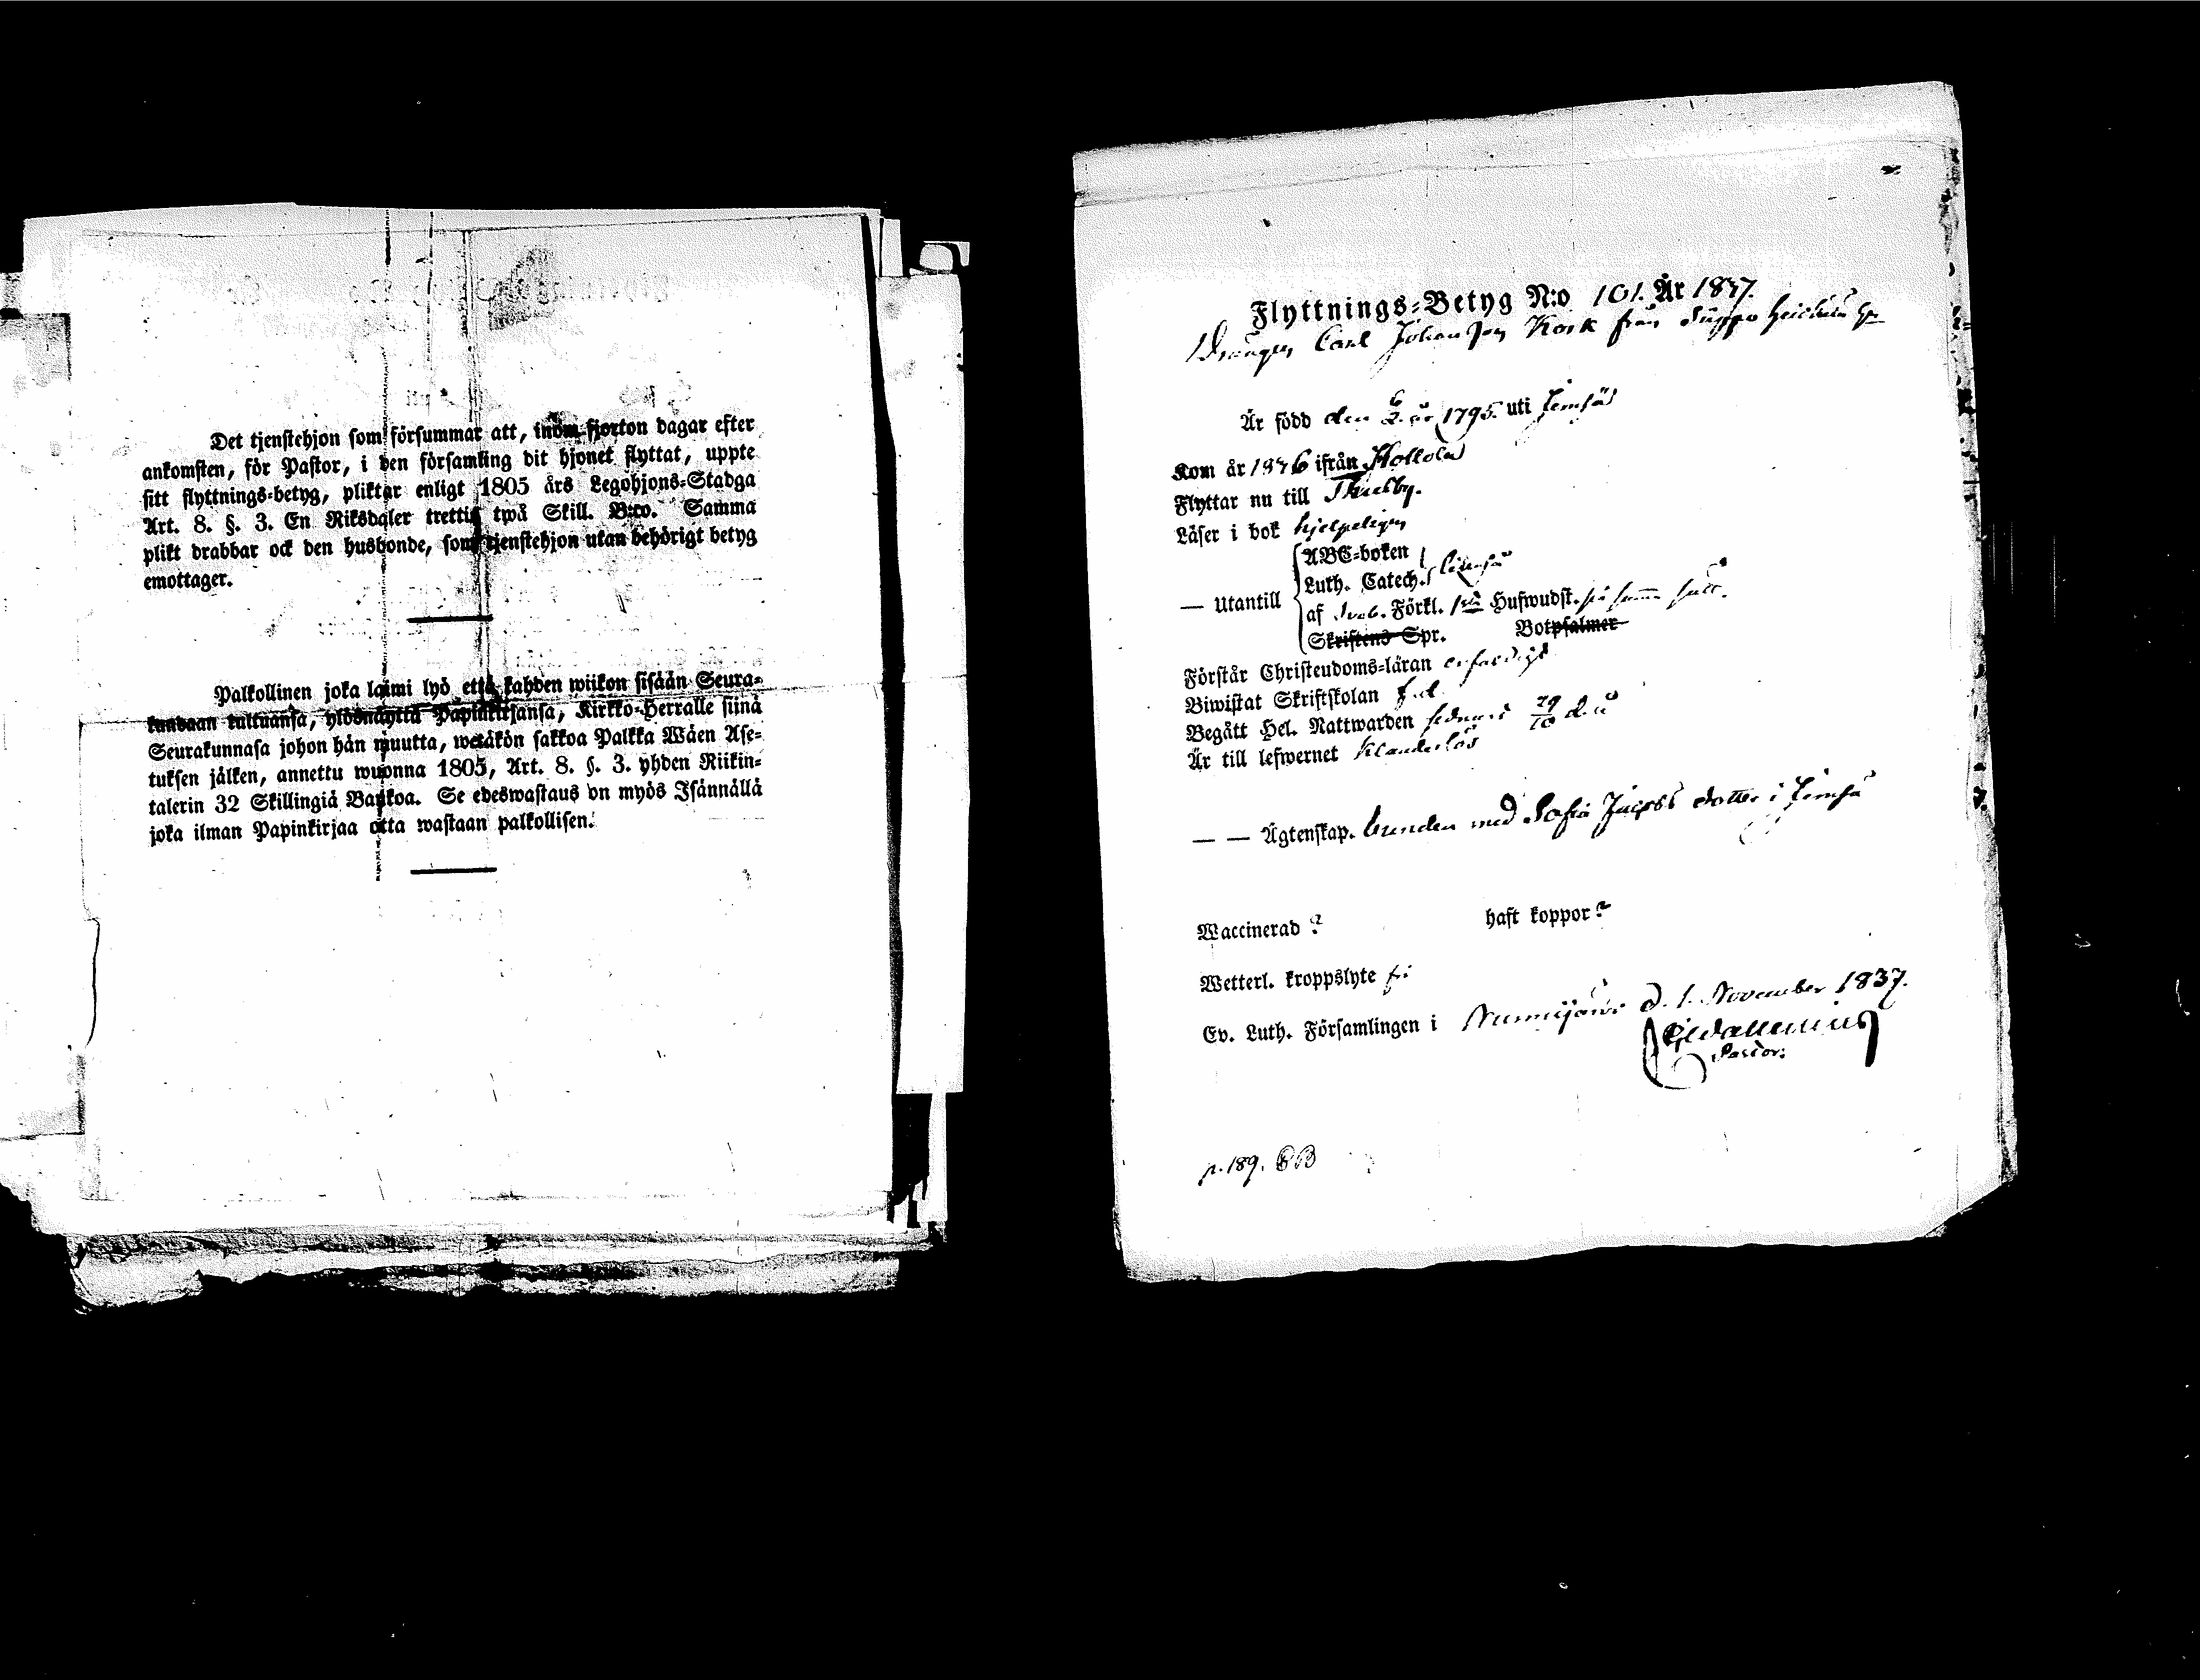 Det tjenstehjon som försummar att, inom fjorton dagar efter
ankomsten, för Pastor, i den församling dit hjonet flyttat, uppte
sitt flyttnings-betyg, pliktar enligt 1805 års Legohjons-Stadga
Art. 8. §. 3. En Riksdaler trettie twå Skill. B:co. Samma
plikt drabbar ock den husbonde, som tjenstehjon utan behörigt betyg
emottager.
Palkollinen joka laimi lyö että kahden wiikon sisään Seura-
kundaan tultuansa, ylösnäyttä Papinkirjansa, Kirkko-Herralle siinä
Seurakunnasa johon hän muutta, wetäkön sakkoa Palkka Wäen Ase-
tuksen jälken, annettu wuonna 1805, Art. 8. §. 3. yhden Riikin-
talerin 32 Skillingiä Bankoa. Se edeswastaus on myös Isännällä
joka ilman Papinkirjaa otta wastaan palkollisen.
Flyttnings-Betyg N:o 101. År 1837.
Drängen Carl Johansson Kosk från
Är född den 6/2 år 1795. uti Jemsä
Kom år 1836 ifrån Hollola
Flyttar nu till Thusby.
Läser i bok hjelpeligen
ABC-boken
Luth. Catech.
— Utantill
af Sveb. Förkl. 1sta Hufwudst. på samma sätt.
Skriftens Spr. Botpsalmer
Förstår Christendoms-läran
Biwistat Skriftskolan
Begått Hel. Nattwarden sednast 29/10 d. å
Är till lefwernet klanderlös
— — Ägtenskap. bunden med Sofia Jacobs dotter i Jemsä
Waccinerad ? haft koppor ?
Wetterl. kroppslyte fri
Ev. Luth. Församlingen i Nurmijärvi d. 1. November 1837.
Wallenius
Pastor.
p. 189.